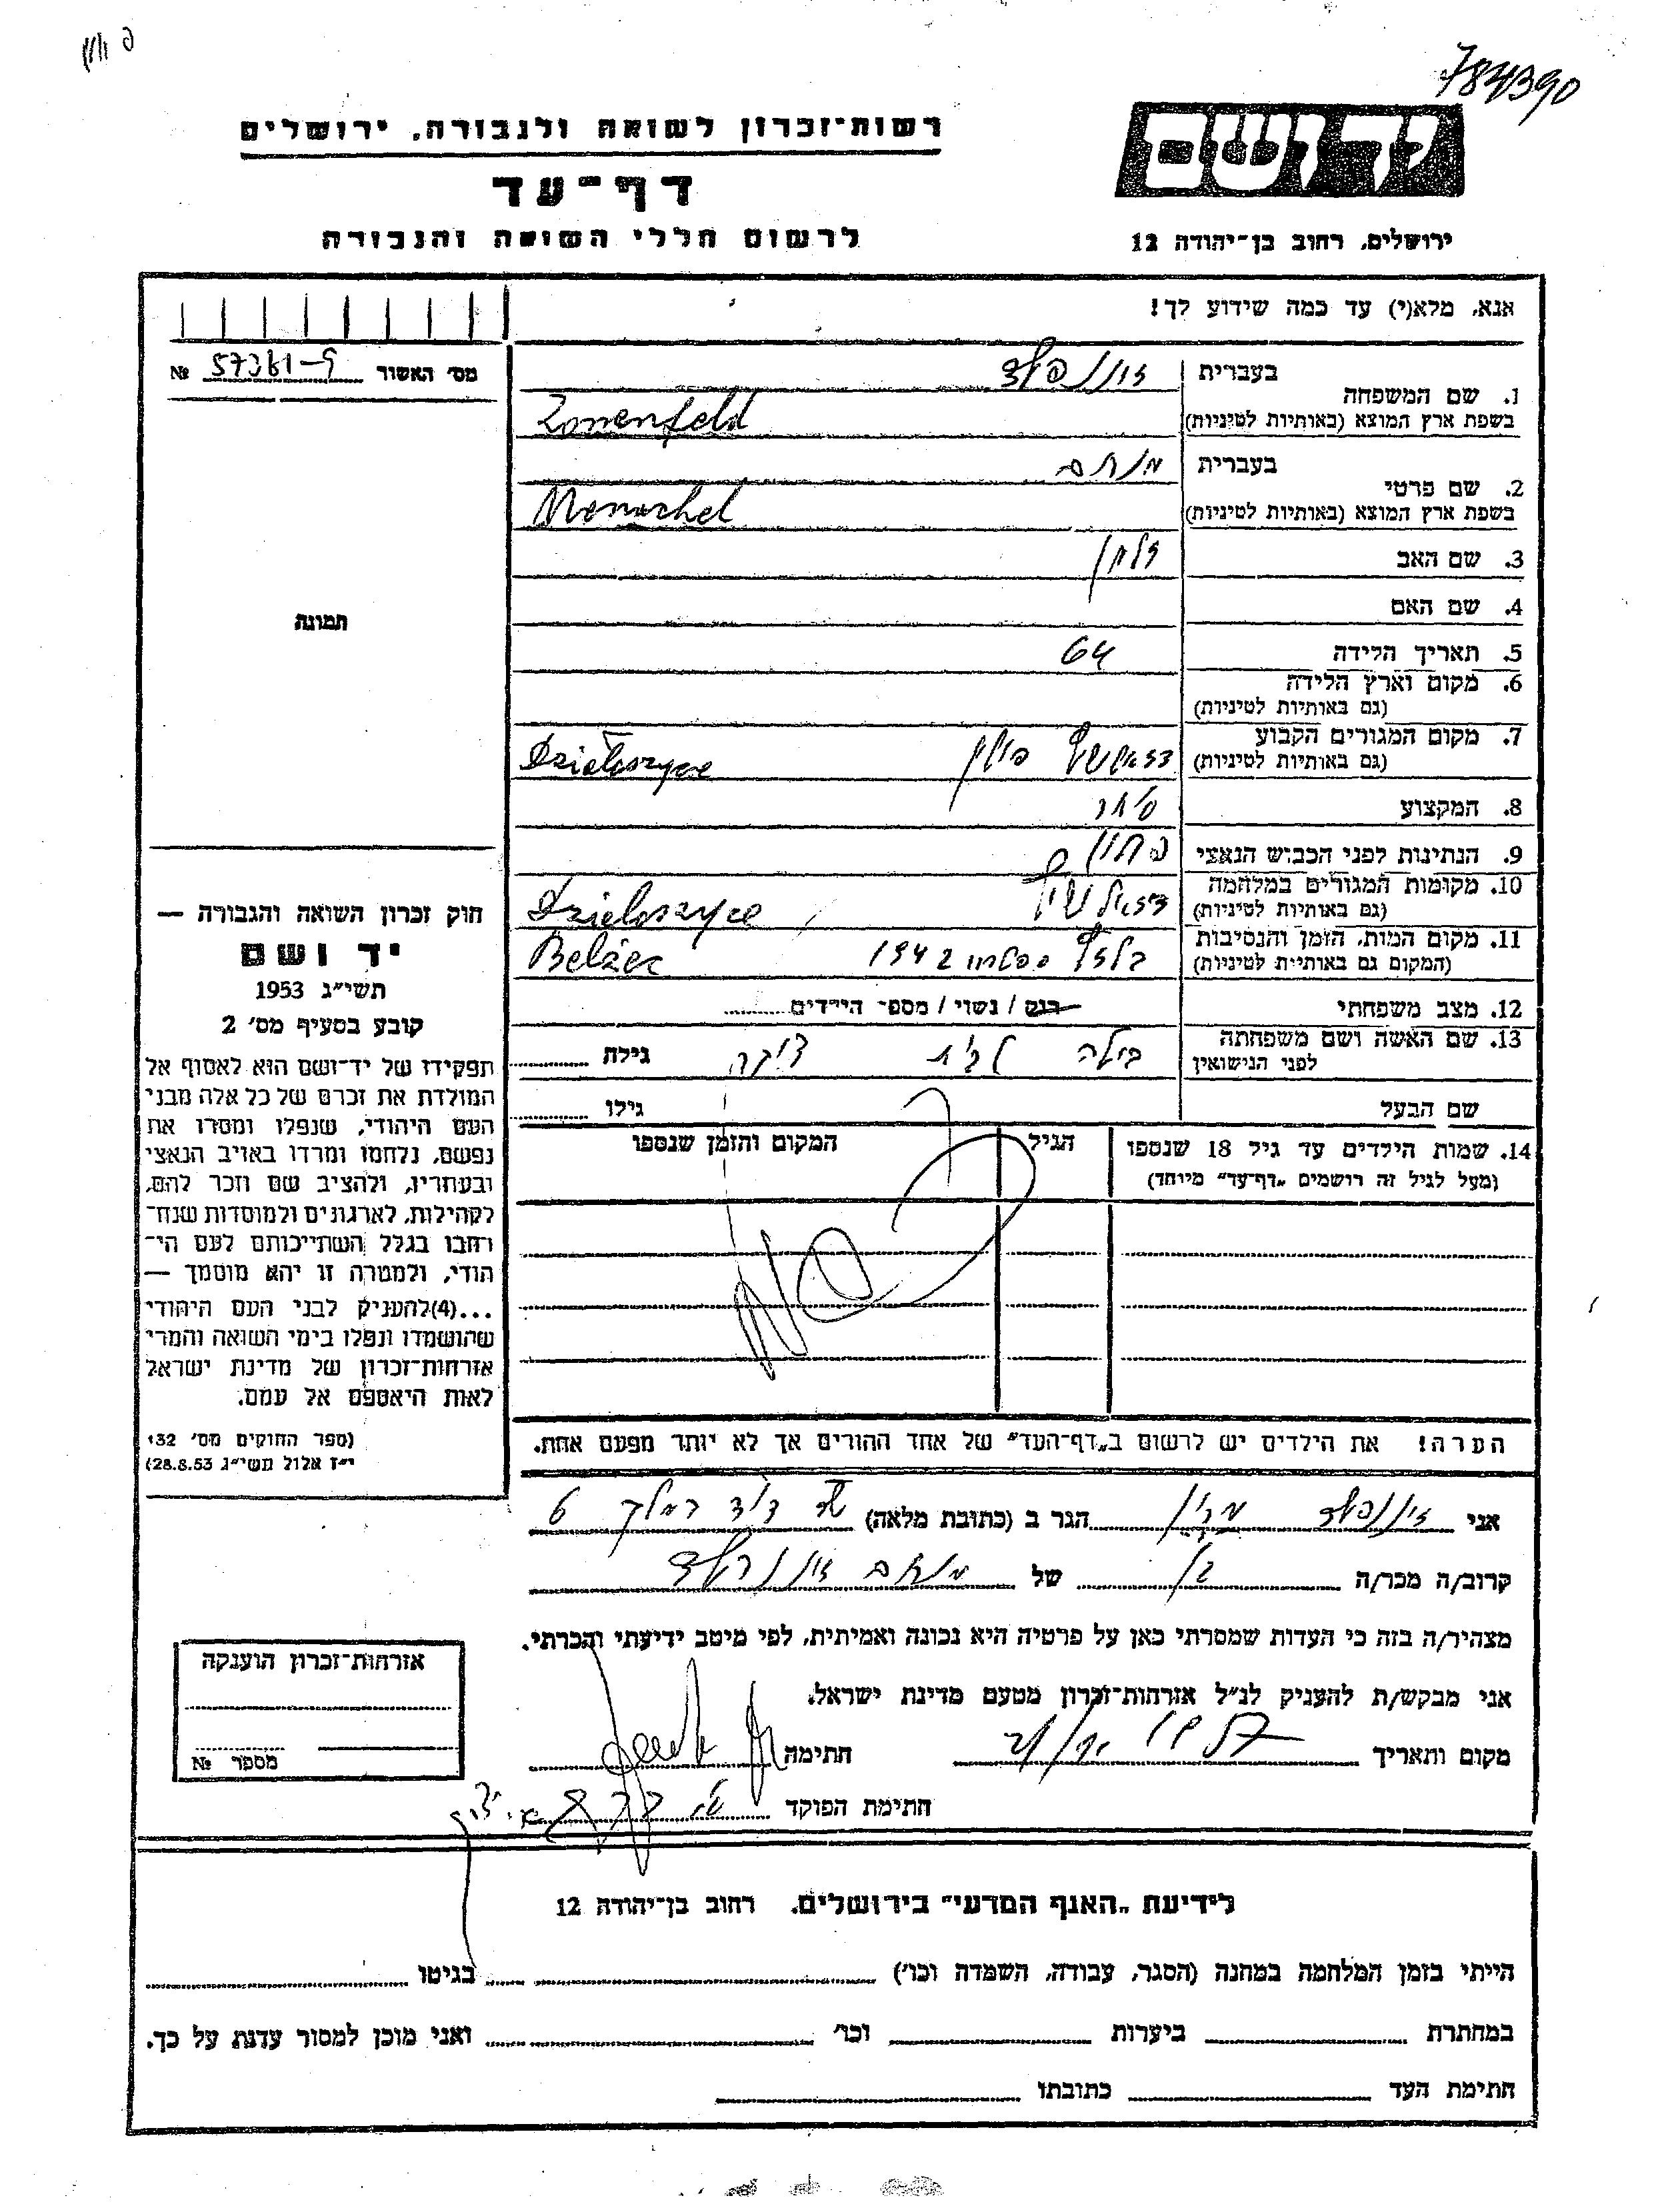 784390
יד ושם
רשות־זכרון לשואה ולגבורה, ירושלים
דף־עד
לרשום חללי השואה והגבורה
ירושלים, רחוב בן־יהודה 12
אנא, מלא(י) עד כמה שידוע לך!
מס׳ האשור 57361-9 №
תמונה
1. שם המשפחה
בעברית זוננפלד
בשפת ארץ המוצא (באותיות לטיניות) Zonenfeld
2. שם פרטי
בעברית מנחם
בשפת ארץ המוצא (באותיות לטיניות) Monachel
3. שם האב זלמן
4. שם האם
5. תאריך הלידה 64
6. מקום וארץ הלידה
(גם באותיות לטיניות)
7. מקום המגורים הקבוע
(גם באותיות לטיניות) פולין Dziełoszyce
8. המקצוע סוחר
9. הנתינות לפני הכבוש הנאצי
10. מקומות המגורים במלחמה
(גם באותיות לטיניות) Dziełoszyce
11. מקום המות, הזמן והנסיבות
(המקום גם באותיות לטיניות) בלזץ 1942 Belżec
12. מצב משפחתי רנק / נשוי / מספר הילדים
13. שם האשה ושם משפחתה
לפני הנישואין בילה לבית גילה
שם הבעל גילו
14. שמות הילדים עד גיל 18 שנספו
(מעל לגיל זה רושמים „דף־עד״ מיוחד)
הגיל
המקום והזמן שנספו
הערה! את הילדים יש לרשום ב„דף־העד״ של אחד ההורים אך לא יותר מפעם אחת.
חוק זכרון השואה והגבורה —
יד ושם
תשי״ג 1953
קובע בסעיף מס׳ 2
תפקידו של יד־ושם הוא לאסוף אל
המולדת את זכרם של כל אלה מבני
העם היהודי, שנפלו ומסרו את
נפשם, נלחמו ומרדו באויב הנאצי
ובעוזריו, ולהציב שם וזכר להם,
לקהילות, לארגונים ולמוסדות שנח־
רבו בגלל השתייכותם לעם הי־
הודי, ולמטרה זו יהא מוסמך —
...(4)להעניק לבני העם היהודי
שהושמדו ונפלו בימי השואה והמרי
אזרחות־זכרון של מדינת ישראל
לאות היאספם אל עמם.
(ספר החוקים מס׳ 132
י״ז אלול תשי״ג 28.8.53)
אני זוננפלד הגר ב (כתובת מלאה) דוד המלך 6
קרוב/ה מכר/ה בן של מנחם זוננפלד
מצהיר/ה בזה כי העדות שמסרתי כאן על פרטיה היא נכונה ואמיתית, לפי מיטב ידיעתי והכרתי.
אני מבקש/ת להעניק לנ״ל אזרחות־זכרון מטעם מדינת ישראל.
מקום ותאריך חתימה
חתימת הפוקד
אזרחות־זכרון הוענקה
מספר №
לידיעת „האגף המדעי״ בירושלים, רחוב בן־יהודה 12
הייתי בזמן המלחמה במחנה (הסגר, עבודה, השמדה וכו׳) בגיטו
במחתרת ביערות וכו׳ ואני מוכן למסור עדות על כך.
חתימת העד כתובתו